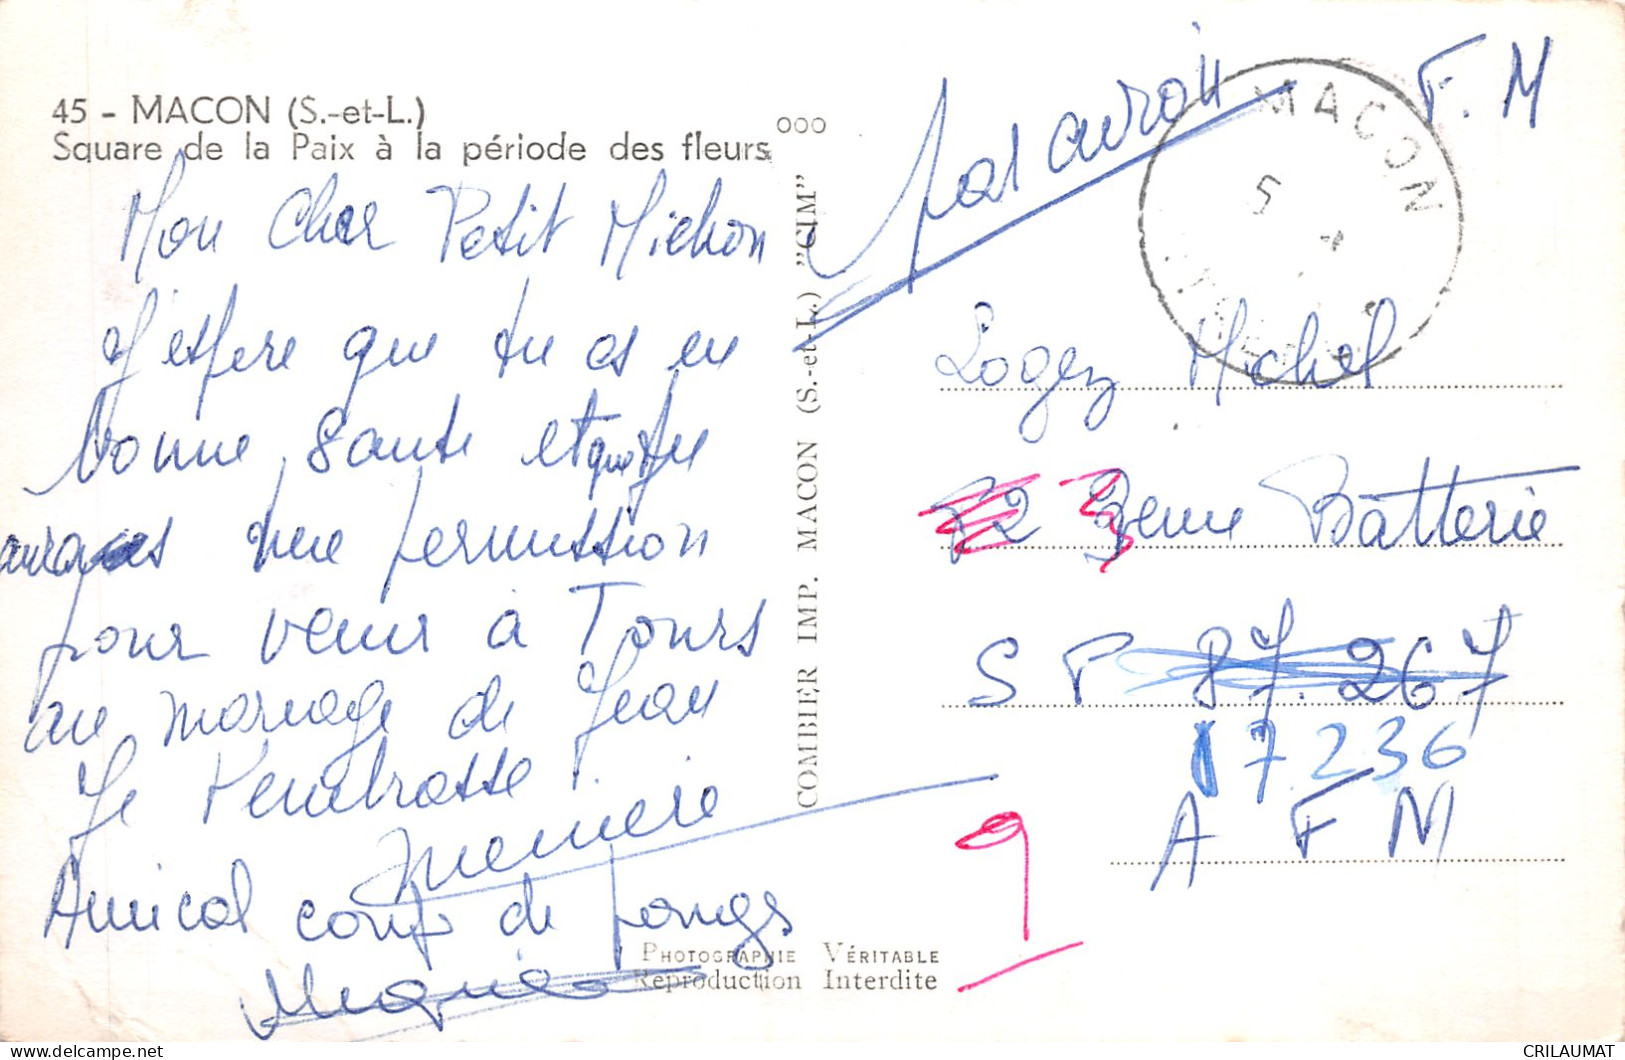 45 - MACON (S.-et-L.)
Square de la Paix à la période des fleurs
Mon Cher Petit Michon
J'espere que tu es en
bonne sante et que tu
auras une permission
pour venir à Tours
au mariage de Jean
Je t'embrasse
Amical coup de
COMBIER IMP. MACON (S.-et-L.) "CIM"
PHOTOGRAPHIE VÉRITABLE
Reproduction Interdite
par avion
F. M
MACON
5
4
Logez Michel
72 3eme Batterie
S P 87.267
17236
A F M
9
CRILAUMAT